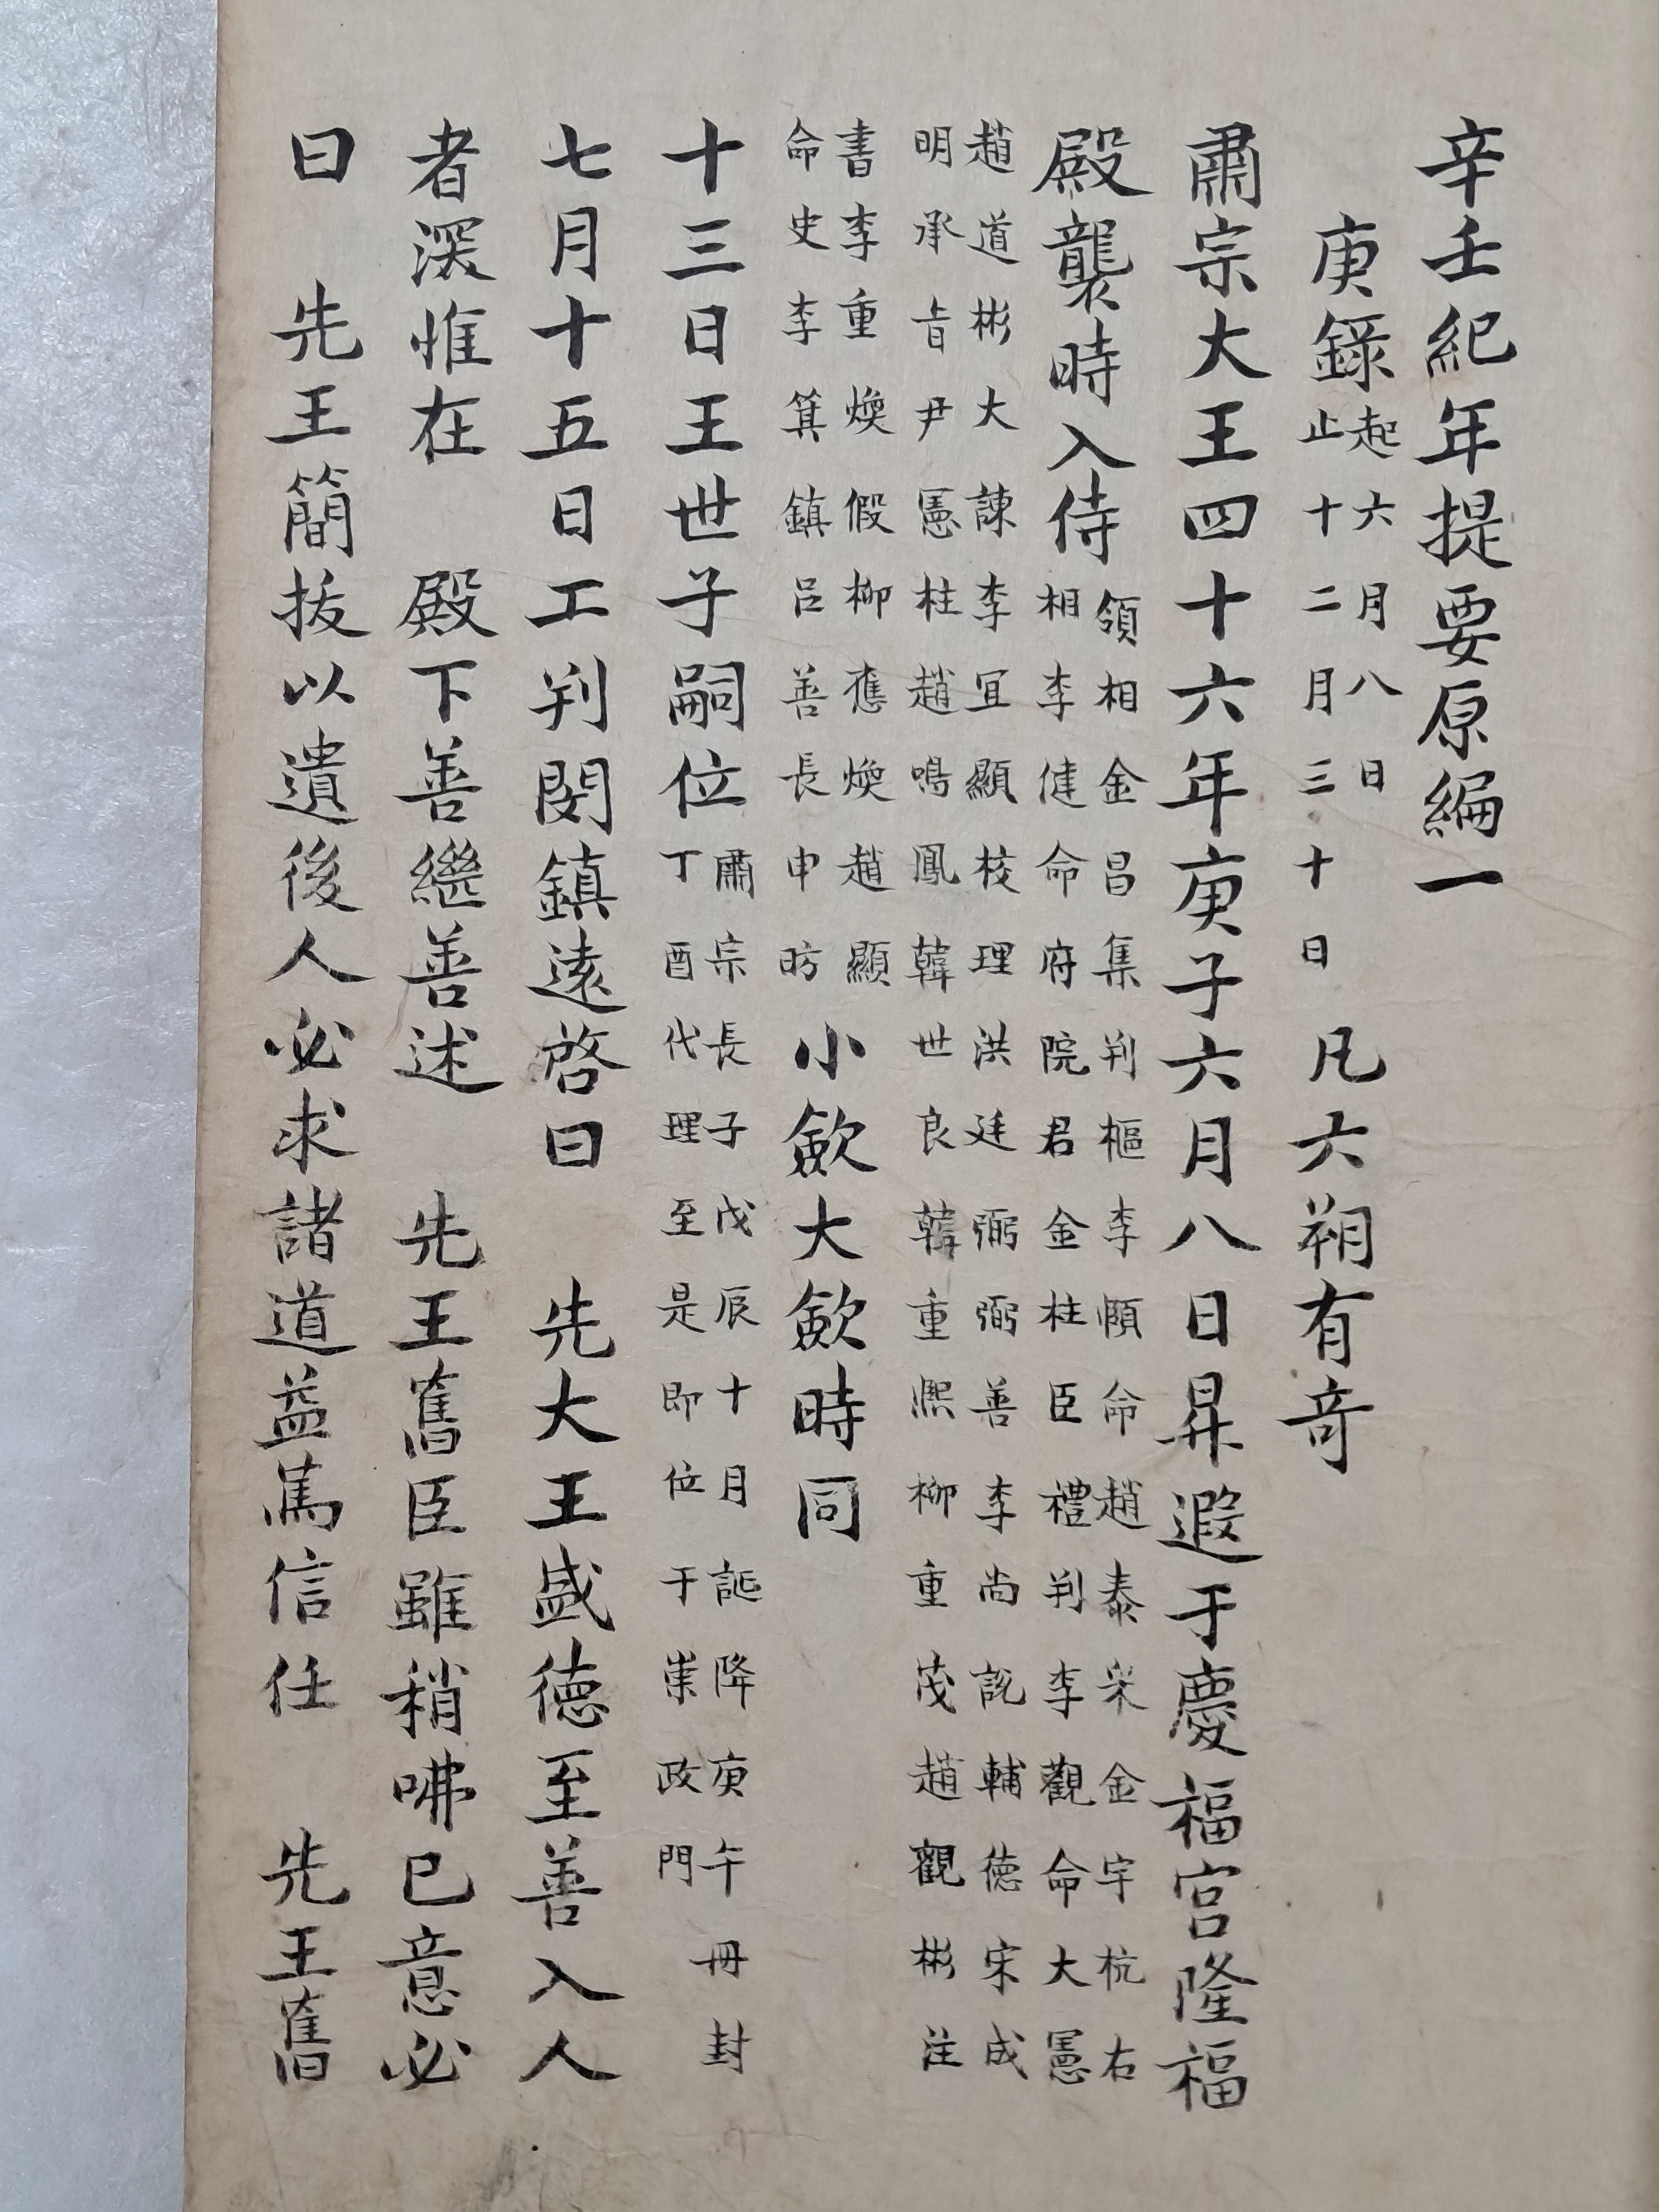 辛壬紀年提要原編一
庚錄起六月八日止十二月三十日凡六朔有奇
肅宗大王四十六年庚子六月八日昇遐于慶福宮隆福
殿襲時入侍領相金昌集判樞李頤命趙泰采金宇杭右
相李健命府院君金柱臣禮判李觀命大憲
趙道彬大諫李宜顯校理洪廷弼弼善李尚訖輔德宋成
明承旨尹憲柱趙鳴鳳韓世良韓重熙柳重茂趙觀彬注
書李重煥假柳應煥趙顯
命史李箕鎮呂善長申昉小斂大斂時同
十三日王世子嗣位肅宗長子戊辰十月誕降庚午冊封
丁酉代理至是即位于崇政門
七月十五日工判閔鎮遠啓曰 先大王盛德至善入人
者深惟在 殿下善繼善述 先王舊臣雖稍咈已意必
曰 先王簡拔以遺後人必求諸道益篤信任 先王舊